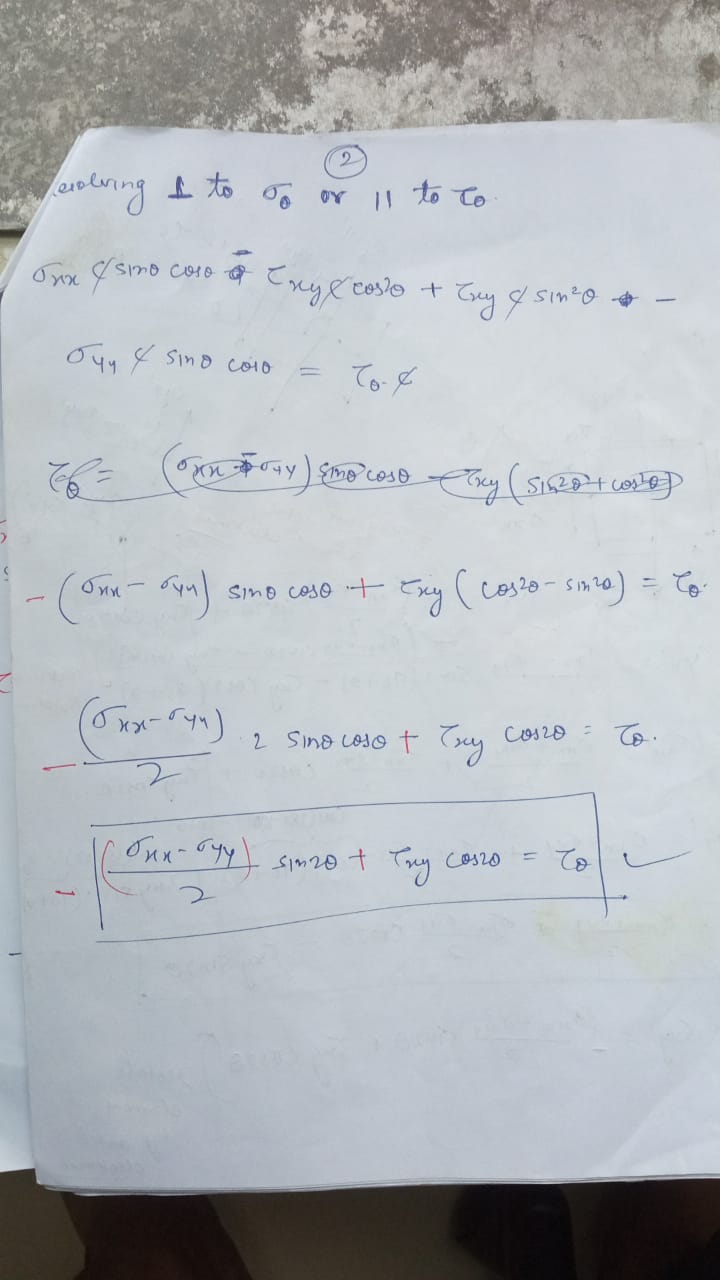 ②
resolving ⊥ to σθ or || to τθ
σxx ₵ sinθ cosθ - τxy ₵ cos²θ + τxy ₵ sin²θ -
σyy ₵ sinθ cosθ = τθ. ₵
τθ = (σxx - σyy) sinθ cosθ - τxy (sin²θ + cos²θ)
- (σxx - σyy) sinθ cosθ + τxy (cos²θ - sin²θ) = τθ.
- (σxx - σyy)/2 2 sinθ cosθ + τxy cos2θ = τθ.
- (σxx - σyy)/2 sin2θ + τxy cos2θ = τθ